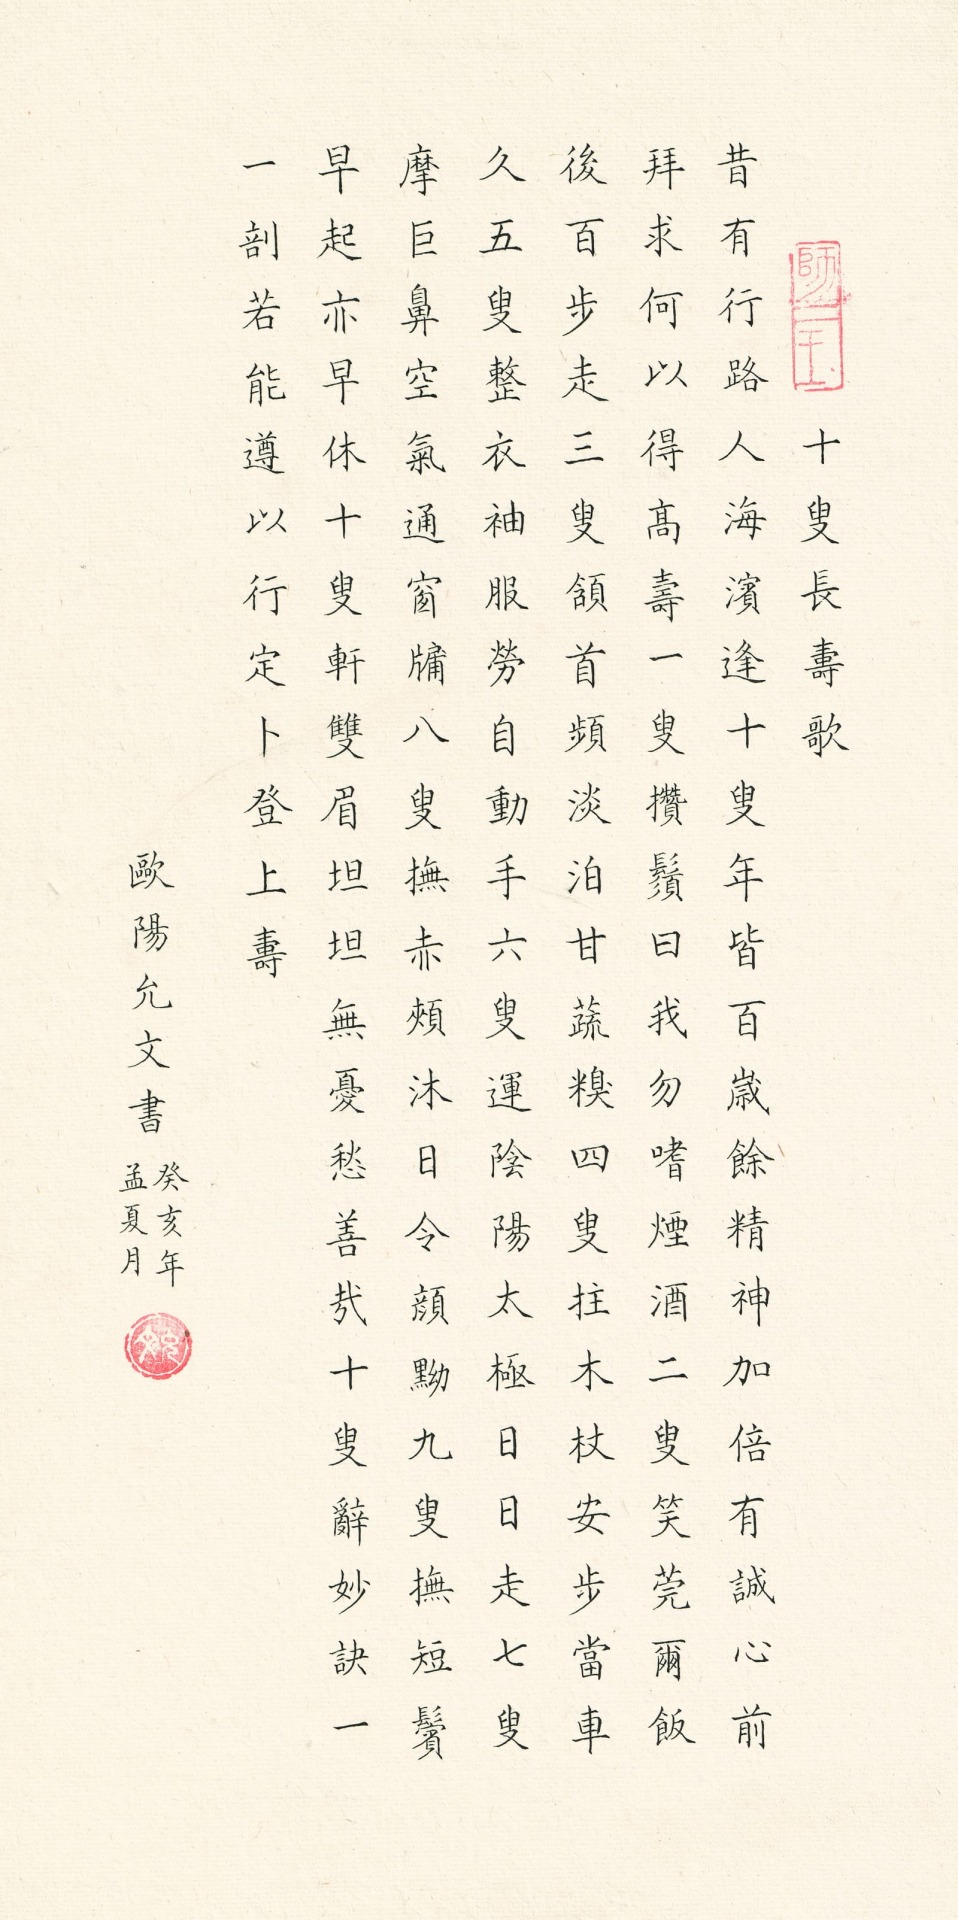 師二王
十叟長壽歌
昔有行路人海濱逢十叟年皆百歲餘精神加倍有誠心前
拜求何以得髙壽一叟攢鬚曰我勿嗜煙酒二叟笑莞爾飯
後百步走三叟頷首頻淡泊甘蔬糗四叟拄木杖安步當車
久五叟整衣袖服勞自動手六叟運陰陽太極日日走七叟
摩巨鼻空氣通窗牖八叟撫赤頰沐日令顏黝九叟撫短鬢
早起亦早休十叟軒雙眉坦坦無憂愁善哉十叟辭妙訣一
一剖若能遵以行定卜登上壽
歐陽允文書
癸亥年
孟夏月